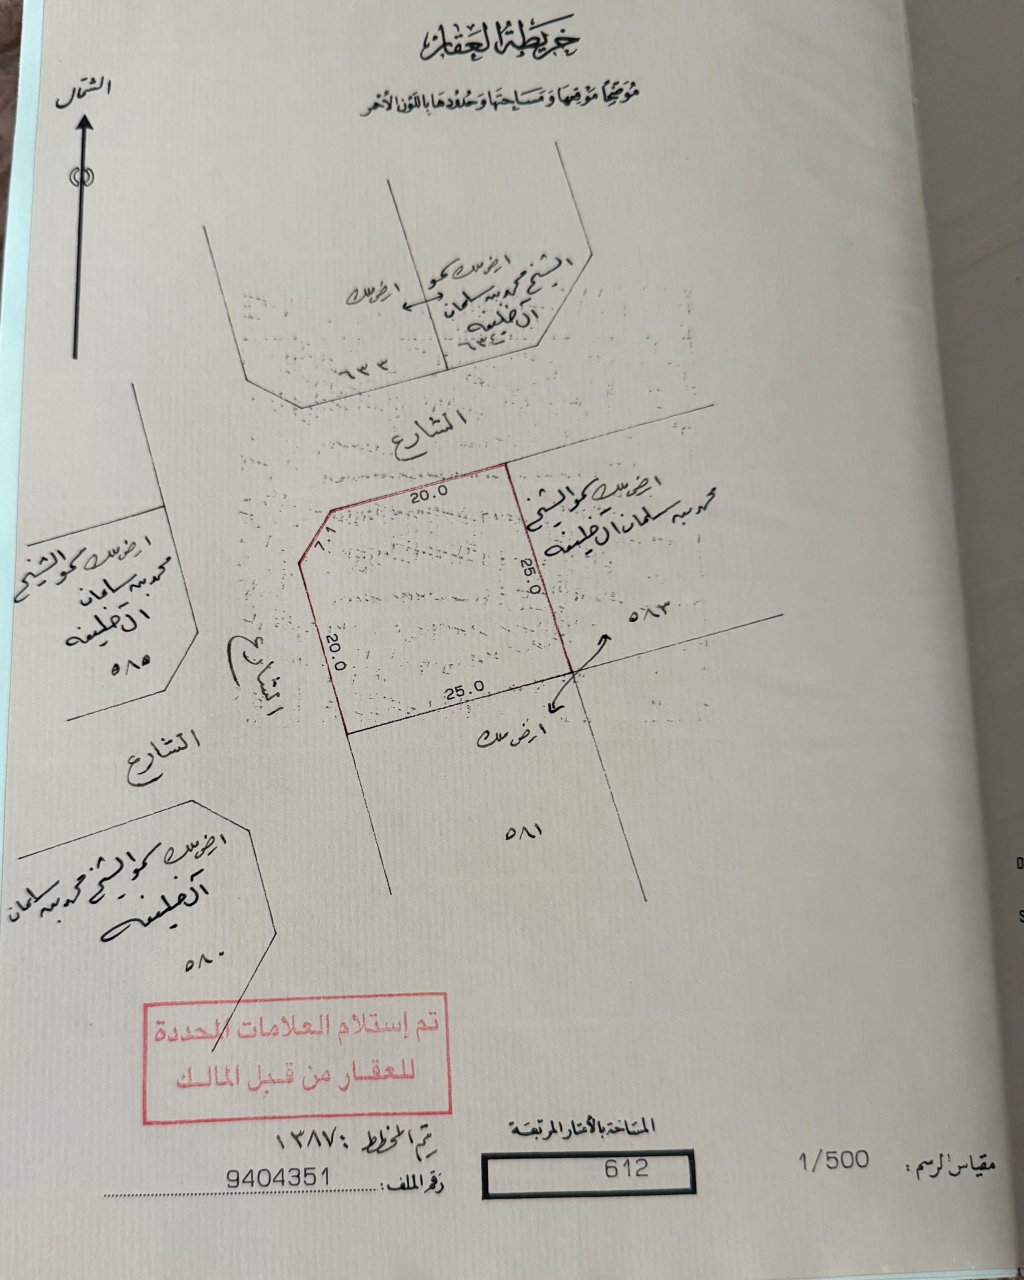 خريطة العقار
موضحًا موقعها ومساحتها وحدودها باللون الأحمر
الشمال
ارض ملك سمو
الشيخ محمد بن سلمان
آل خليفه
٦٣٤
ارض ملك
٦٣٣
الشارع
20.0
7.1
ارض ملك سمو الشيخ
محمد بن سلمان آل خليفه
25.0
٥٨٣
20.0
25.0
ارض ملك
٥٨١
ارض ملك سمو الشيخ
محمد بن سلمان
آل خليفه
٥٨٥
الشارع
الشارع
ارض ملك سمو الشيخ محمد بن سلمان
آل خليفه
٥٨٠
تم إستلام العلامات المحددة
للعقار من قبل المالك
المساحة بالأمتار المربعة
612
رقم المخطط : ١٣٨٧
رقم الملف: 9404351
مقياس الرسم: 1/500
D
S